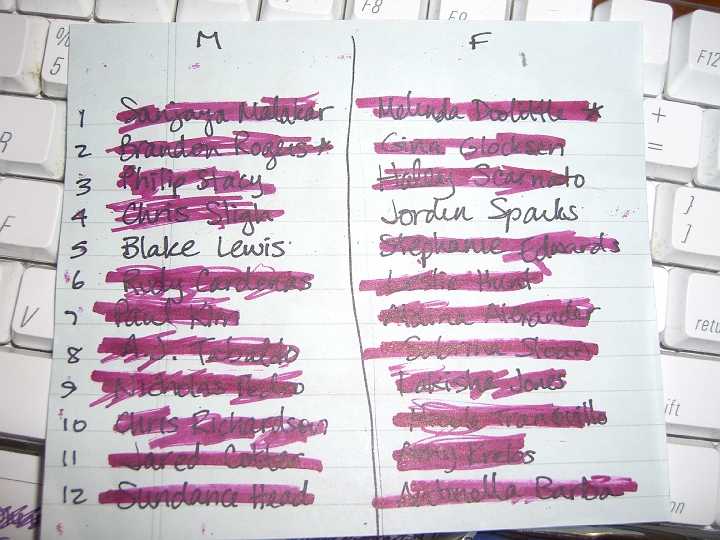 F8 F9
% 5 F12
M F
R
1 Sanjaya Malakar Melinda Doolittle *
+ =
2 Brandon Rogers * Gina Glocksen
3 Philip Stacy Haley Scarnato
4 Chris Sligh Jorden Sparks
F } ]
5 Blake Lewis Stephanie Edwards
6 Rudy Cardenas Leslie Hunt
V
7 Paul Kim Alaina Alexander
retu
8 A.J. Tabaldo Sabrina Sloan
9 Nicholas Pedro Lakisha Jones
ift
10 Chris Richardson Nicole Tranquillo
11 Jared Cotter Amy Krebs
12 Sundance Head Antonella Barba